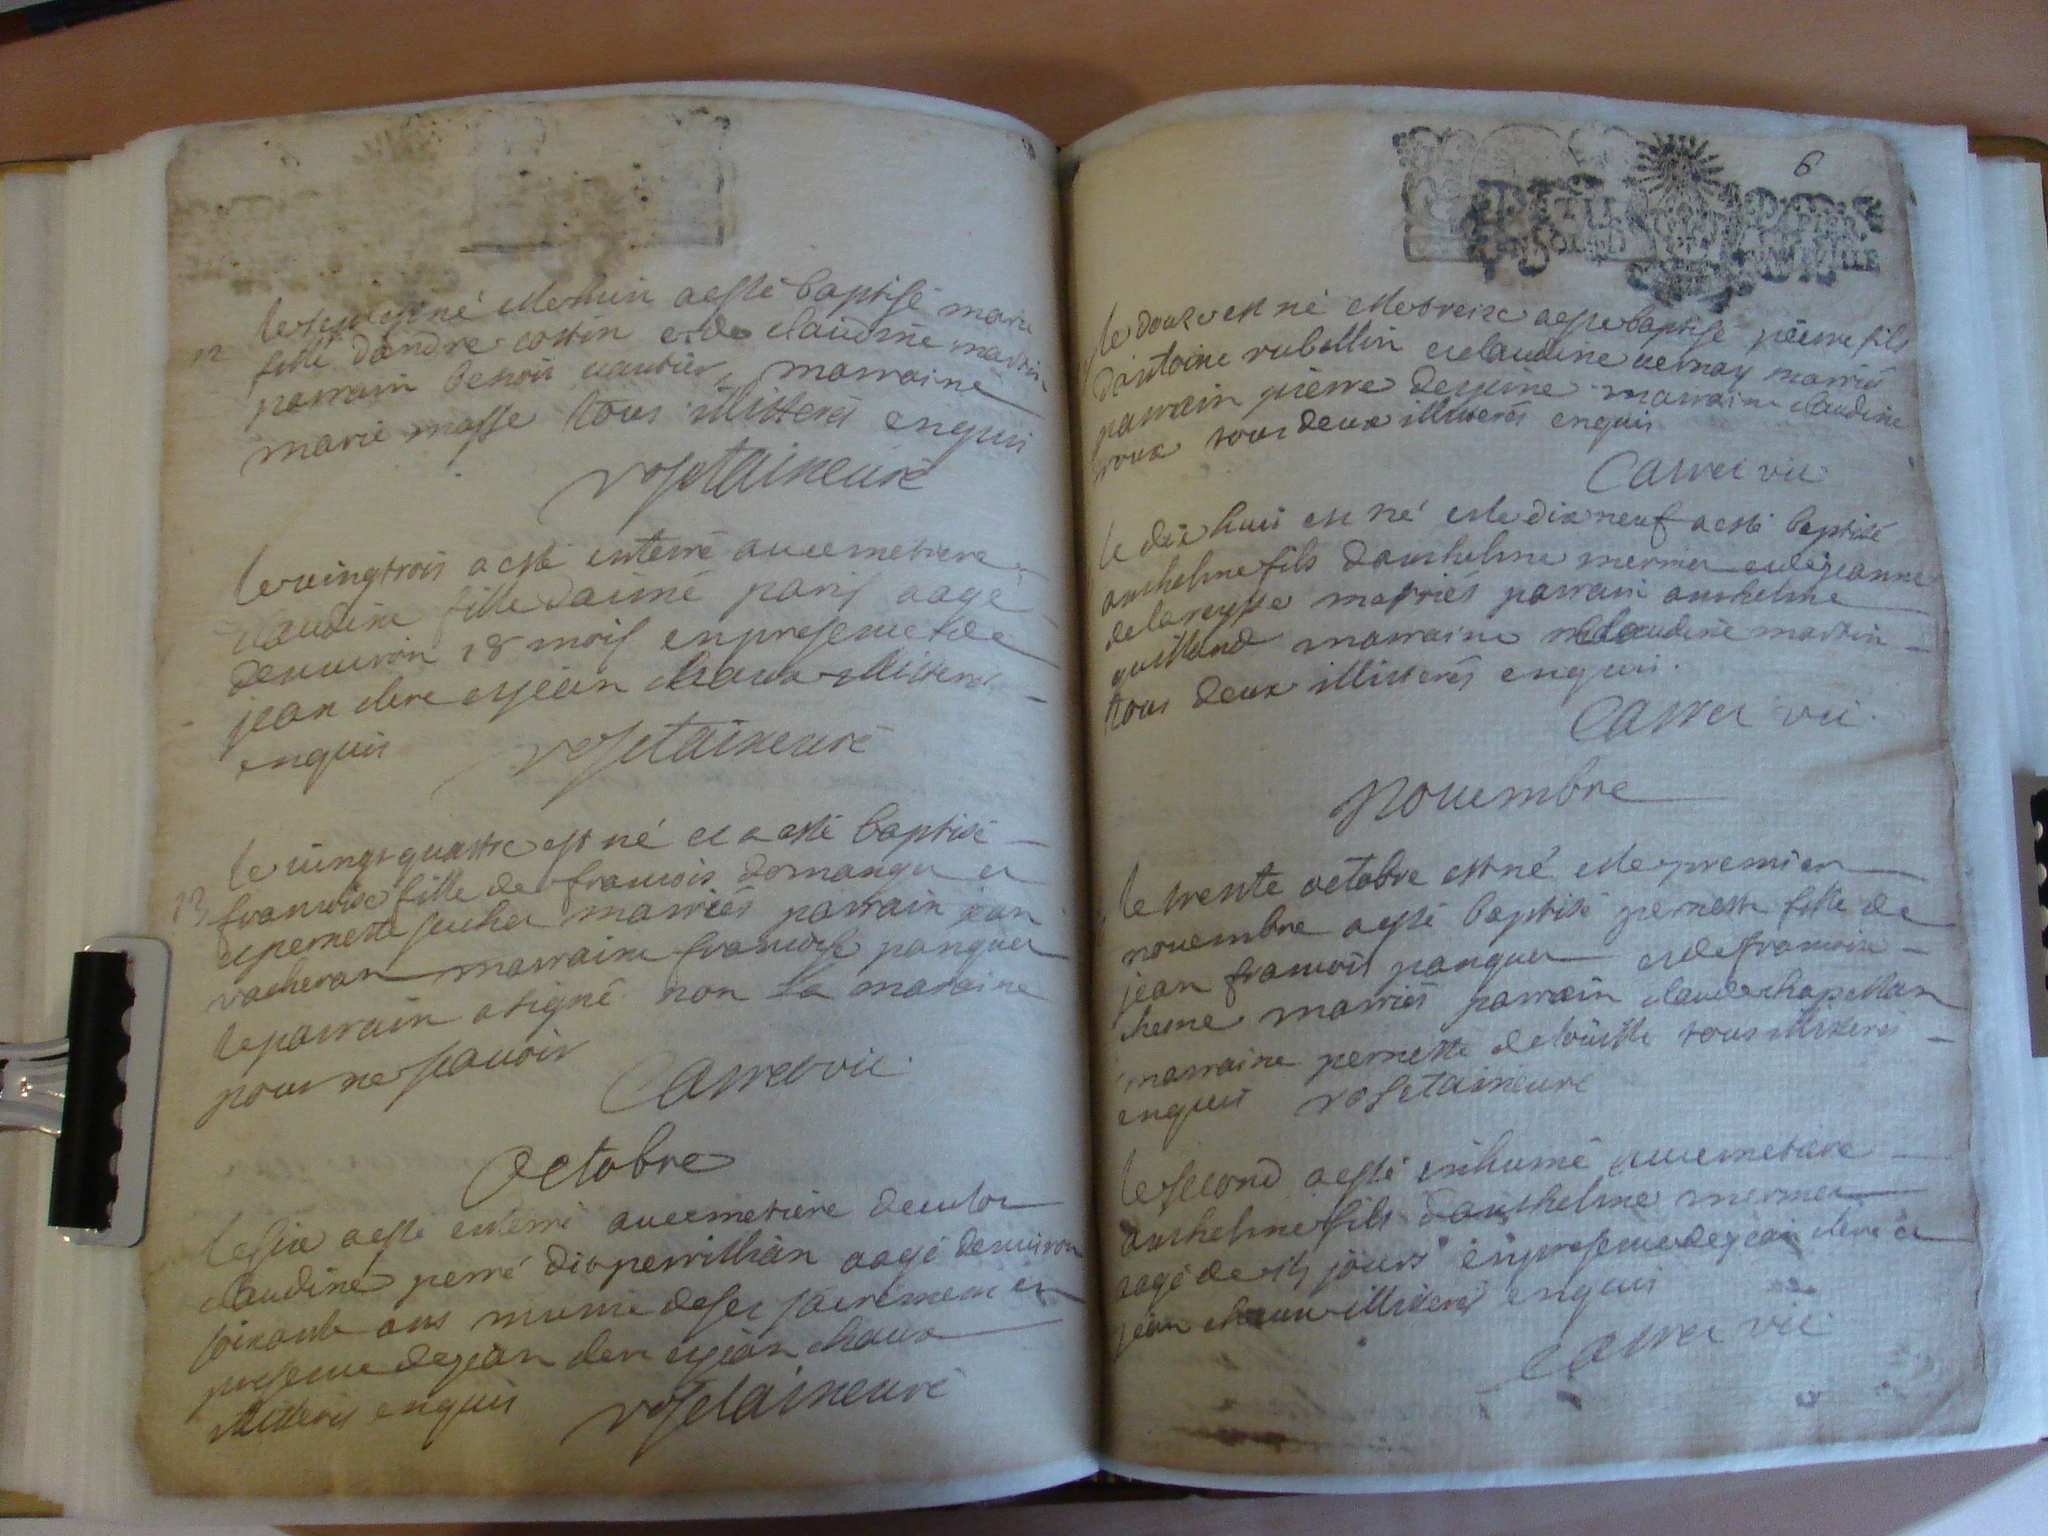 le sept est né et le huit a esté baptisé marie
12 fille dandré cottin et de claudine martin
parrain benoit vautier marraine
marie masse tous illitterés enquis
rosetaincuré
le vingtrois a esté enterré au cemetiere
claudine fille daimé paris aagé
denuiron 18 mois en presence de
jean clere et jean chaux illitterés
enquis rosetaincuré
le vingt quatre est né et a esté baptisé
13 francoise fille de francois domanger et
et pernette sucher mariés parrain jean
vacheran marraine francoise panguer
le parrain a signé non la maraine
pour ne scauoir
Carret vic
Octobre
le six a esté enterré au cemetiere de culoz
claudine perré dit perrillian aagé denuiron
soixante ans munie de ses sacremens en
presence de jean clere et jean chaux
illitterés enquis rosetaincuré
6
le douze est né et le treize a esté baptisé pierre fils
dantoine rubellin et claudine vernay mariés
parrain pierre marraine claudine
roux tous deux illitterés enquis
Carret vic
le dix huit est né et le dix neuf a esté baptisé
anthelme fils danthelme mermet et de jeanne
delareysse mariés parrain anthelme
guilland marraine claudine martin
tous deux illitterés enquis.
Carret vic.
Nouembre
le trente octobre est né et le premier
nouembre a esté baptisé pernette fille de
jean francois panguer et de francoise
cheme mariés parrain claude chapellan
marraine pernette tous illitterés
enquis rosetaincuré
le second a esté inhumé au cemetiere
anthelme fils danthelme mermet
aagé de 15 jours en presence de jean clere et
jean chaux illitterés enquis
Carret vic